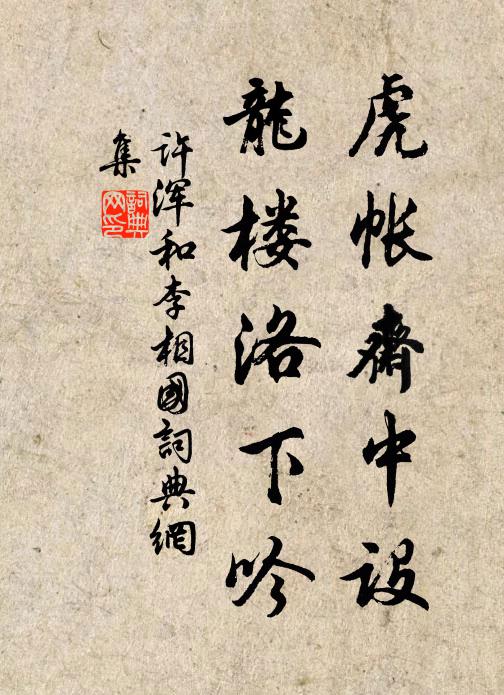 虎帐齋中設
龍楼洛下吟
许浑和李相國詞典網
集
詞典網印